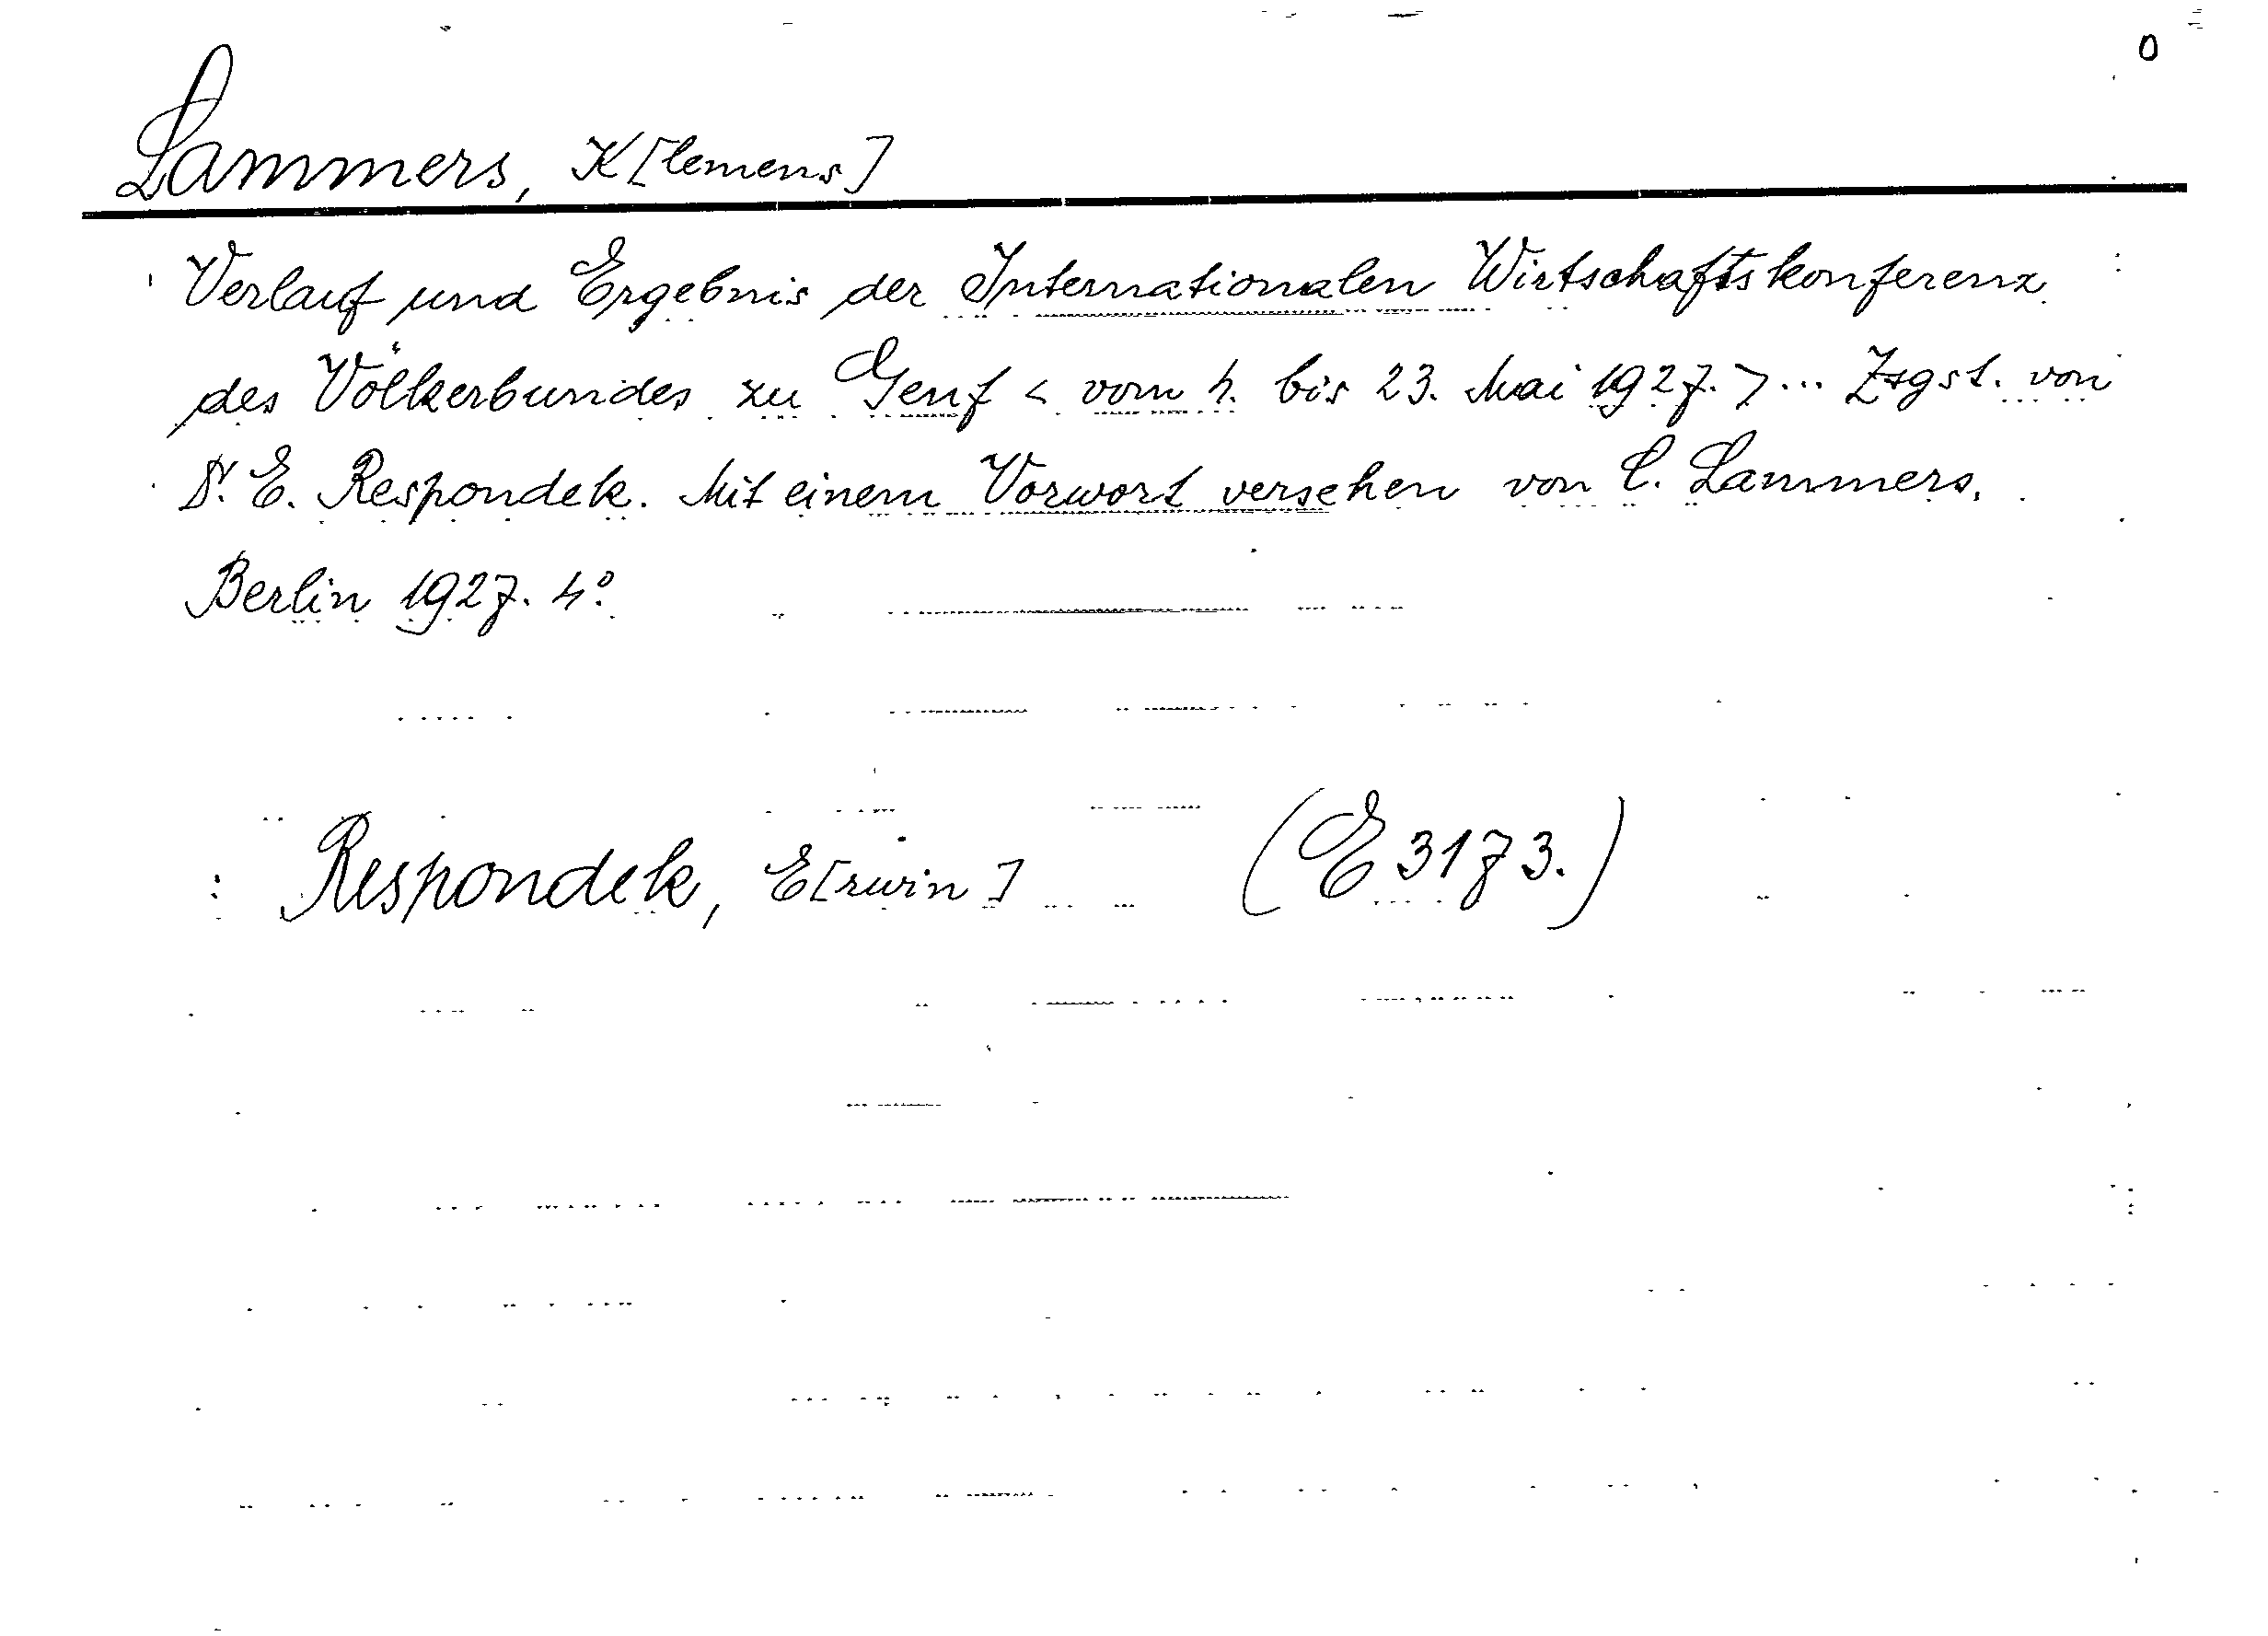 0
Lammers, K[lemens]
Verlauf und Ergebnis der Internationalen Wirtschaftskonferenz
des Völkerbundes zu Genf < vom 4. bis 23. Mai 1927. > ... Zsgst. von
Dr. E. Respondek. Mit einem Vorwort versehen von C. Lammers.
Berlin 1927. 4°.
Respondek, E[rwin] (E 3173.)